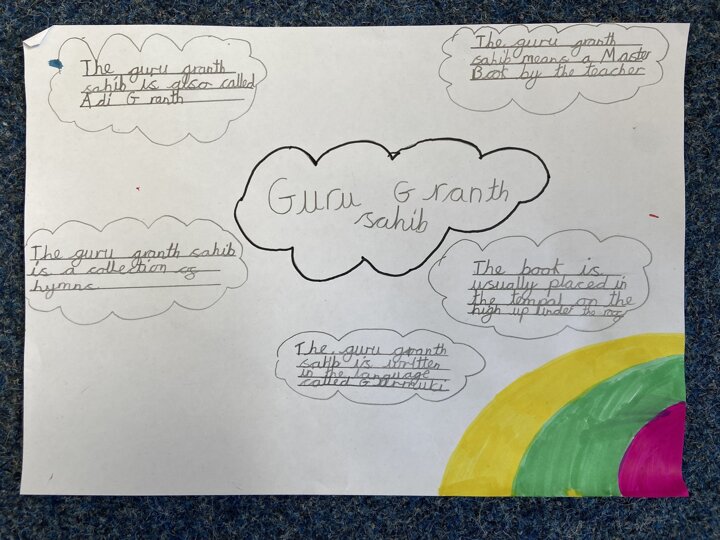 The guru granth
sahib is also called
Adi G ranth
The guru granth
sahib means a Master
Book by the teacher
Guru Granth
sahib
The guru granth sahib
is a collection of
hymns.
The book is
usually placed in
the tempal on the
high up under the
The guru granth
sahib is written
in the language
called Gurmuki